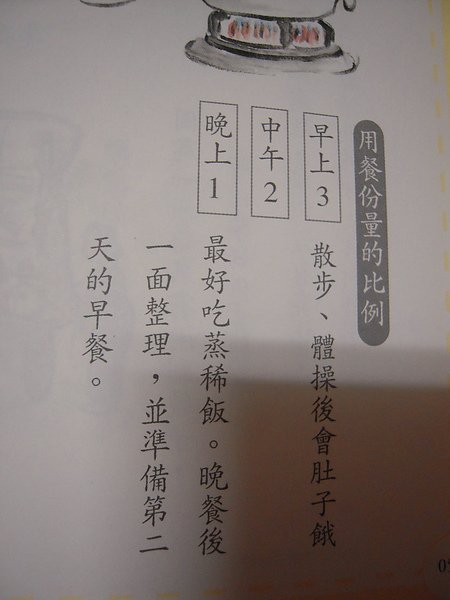 用餐份量的比例
早上3
散步、體操後會肚子餓
中午2
晚上1
最好吃蒸稀飯。晚餐後
一面整理，並準備第二
天的早餐。